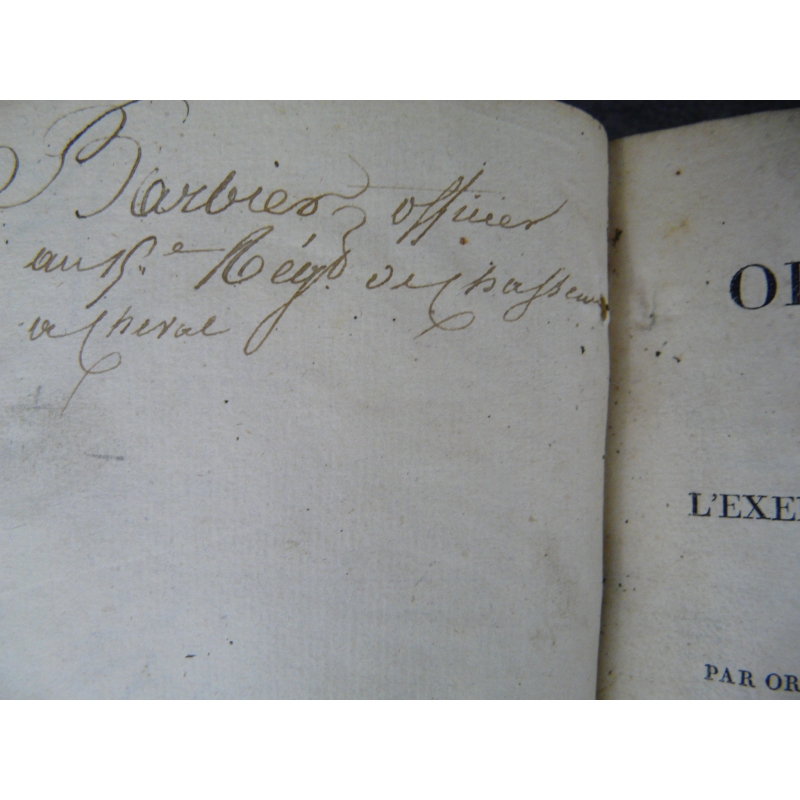 Barbier officier
au 15.e Régt de Chasseurs
a Cheval
OR
L'EXER
PAR OR